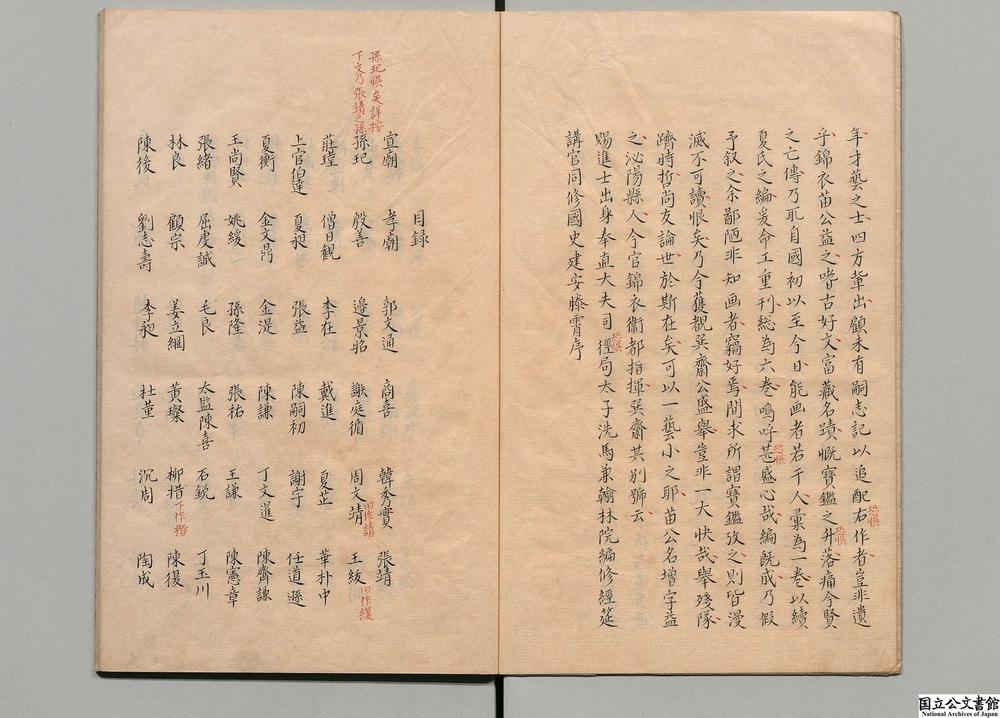 年才藝之士四方輩出顧未有嗣志記以追配右作者豈非遺
恐誤
乎錦衣苗公益之嗜古好文富藏名蹟慨寶鑑之舛落痛今賢
恐誤
之亡傳乃耴自國初以至今日能画者若干人彙為一卷以續
夏氏之編爰命工重刊総為六卷嗚呼甚盛心哉編既成乃假
恐誤
予叙之余鄙陋非知画者竊好焉間求所謂寶鑑攷之則皆漫
滅不可讀恨矣乃今獲覩巽齋公盛舉豈非一大快哉舉殘隊
躋時哲尚友論世於斯在矣可以一藝小之耶苗公名增字益
之泌陽縣人今官錦衣衞都指揮巽齋其别號云
賜進士出身奉直大夫司徑局太子洗馬兼翰林院編修經筵
恐誤
講官同修國史建安滕霄序
目録
宣廟 孝廟 郭文通 商喜 韓秀實 張靖
孫玘誤矣詳按
下文乃張靖之孫
孫玘 殷善 邊景昭 謝庭循 周文靖 王紱
旧作請
旧作緩
莊瑝 僧日觀 李在 戴進 夏芷 華朴中
上官伯達 夏昶 張益 陳嗣初 謝宇 任道遜
夏衡 金文鼎 金湜 陳謙 丁文暹 陳齊謙
王尚賢 姚綬 孫隆 張祐 王謙 陳憲章
張緒 屈虔誠 毛良 太監陳喜 石鋭 丁玉川
林良 顧宗 姜立綱 黃璨 柳揩 陳復
下作楷
陳後 劉志壽 李昶 杜堇 沉周 陶成
国立公文書館
National Archives of Japan